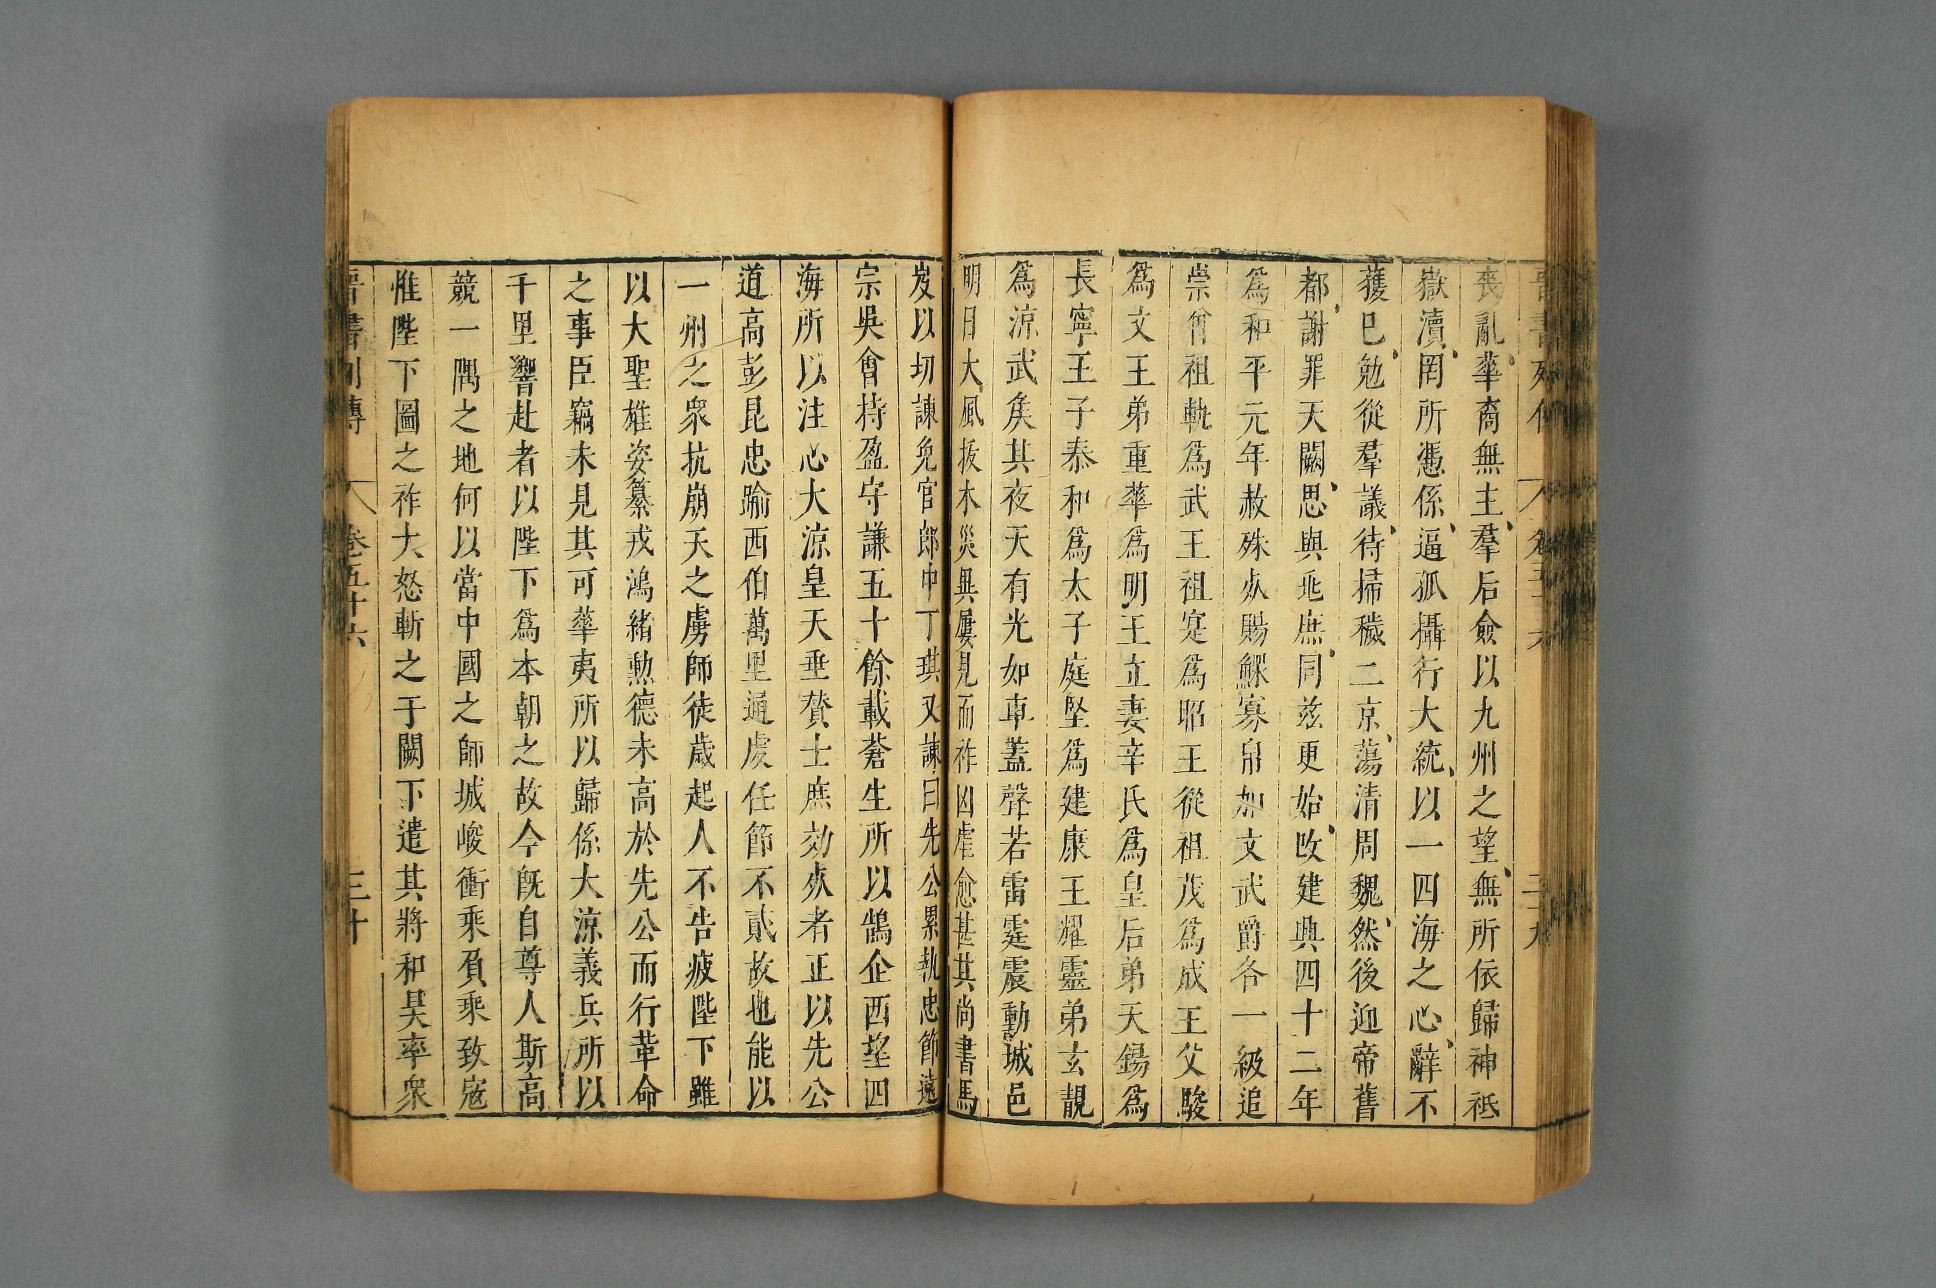 喪亂華裔無主羣后僉以九州之望無所依歸神祗
嶽瀆罔所憑係逼孤攝行大統以一四海之心辭不
獲已勉從羣議待掃穢二京蕩清周魏然後迎帝舊
都謝罪天闕思與兆庶同兹更始改建興四十二年
爲和平元年赦殊死賜鰥寡帛加文武爵各一級追
崇曾祖軌爲武王祖寔爲昭王從祖茂爲成王父駿
爲文王弟重華爲明王立妻辛氏爲皇后弟天錫爲
長寧王子泰和爲太子庭堅爲建康王耀靈弟玄靚
爲涼武矦其夜天有光如車蓋聲若雷霆震動城邑
明日大風拔木災異屢見而祚凶虐愈甚其尚書馬
岌以切諫免官郎中丁琪又諫曰先公累執忠節遠
宗吳會持盈守謙五十餘載蒼生所以鵠企西望四
海所以注心大涼皇天垂贊士庶効死者正以先公
道高彭昆忠踰西伯萬里通虔任節不貳故也能以
一州之衆抗崩天之虜師徒歲起人不告疲陛下雖
以大聖雄姿纂戎鴻緒勳德未高於先公而行革命
之事臣竊未見其可華夷所以歸係大涼義兵所以
千里響赴者以陛下爲本朝之故今旣自尊人斯高
競一隅之地何以當中國之師城峻衝乘負乘致寇
惟陛下圖之祚大怒斬之于闕下遣其將和昊率衆
晉書列傳 卷五十六 三十